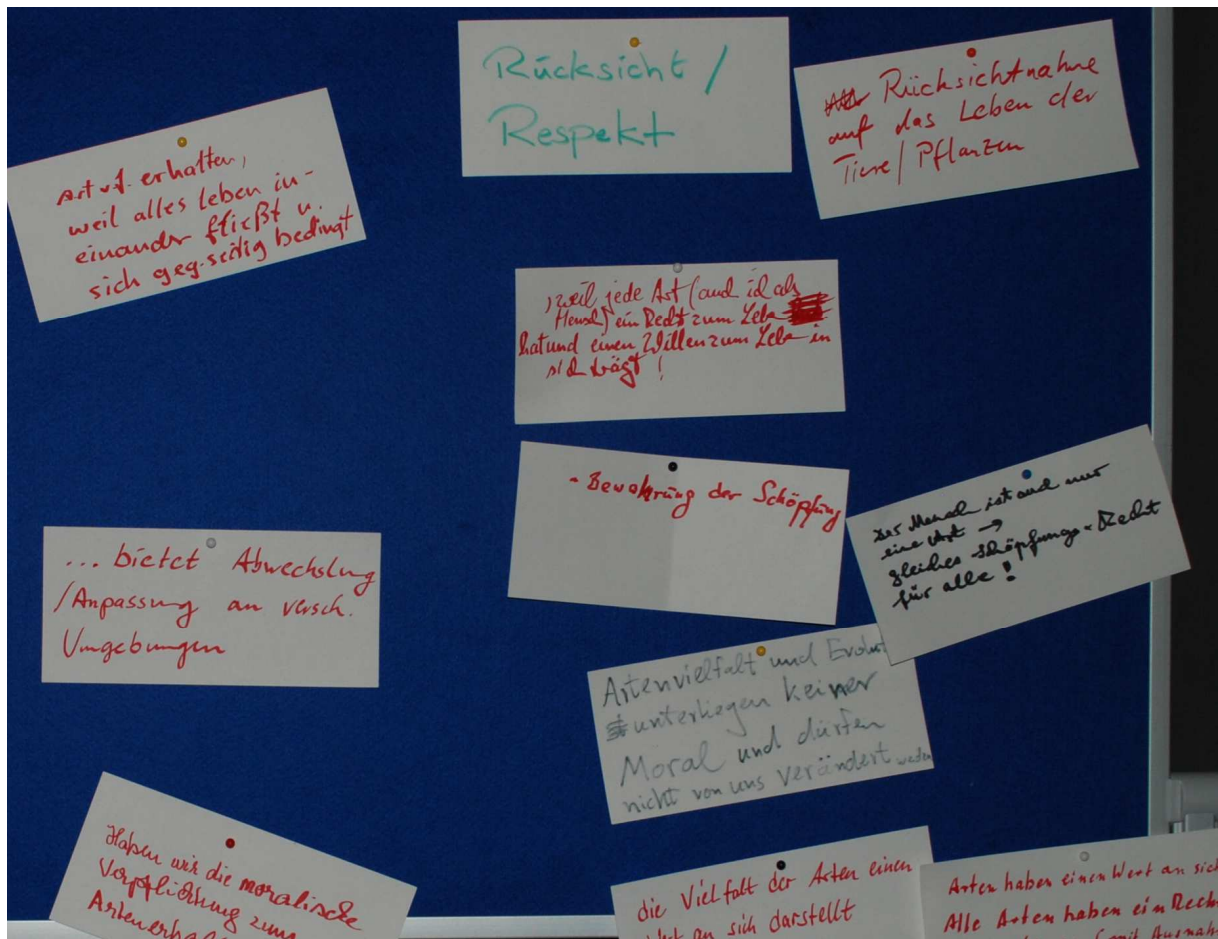 Rücksicht /
Respekt
Rücksichtnahme
auf das Leben der
Tiere / Pflanzen
erhalten,
weil alles leben in-
einander fließt u.
sich geg-seitig bedingt
, weil jede Art (auch ich als
Mensch) ein Recht zum Leben
hat und einen Willen zum Leben in
sich trägt !
- Bewahrung der Schöpfung
Der Mensch ist auch nur
eine Art →
gleiches Schöpfungs-Recht
für alle !
... bietet Abwechslung
/Anpassung an versch.
Umgebungen
Artenvielfalt und Evolut
unterliegen keiner
Moral und dürfen
nicht von uns verändert werden
Haben wir die moralische
Verpflichtung zum
die Vielfalt der Arten einen
an sich darstellt
Arten haben einen Wert an sich
Alle Arten haben ein Recht